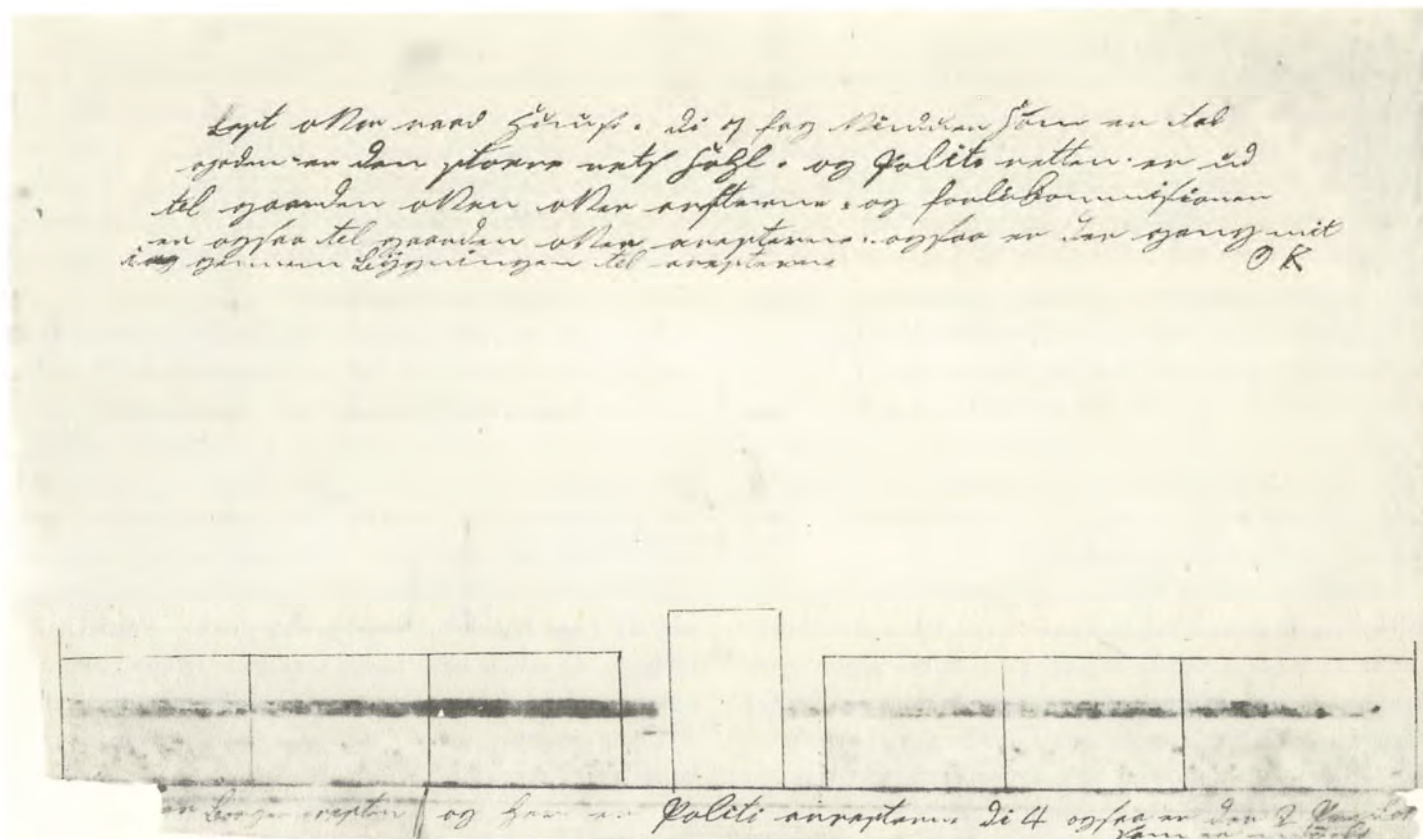 over raad Huuset. di 7 fag Vinduer som er til
gaden er den støree rets Sahl. og Politi retten. er ud
til gaarden over over aresterne. og forlikommisionen
er ogsaa til gaarden over aresterne. ogsaa er der gang mit
i gennem Bygningen til aresterne OK
er Borger aresten og her er Politi aresterne Di 4 ogsaa er der 2